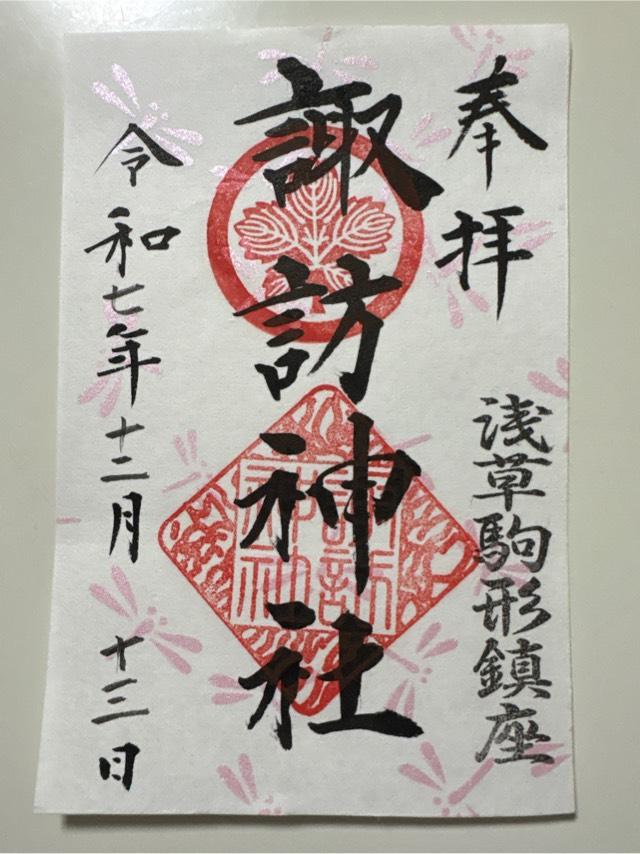 奉拝
浅草駒形鎮座
諏訪神社
諏訪神社
令和七年十二月十三日